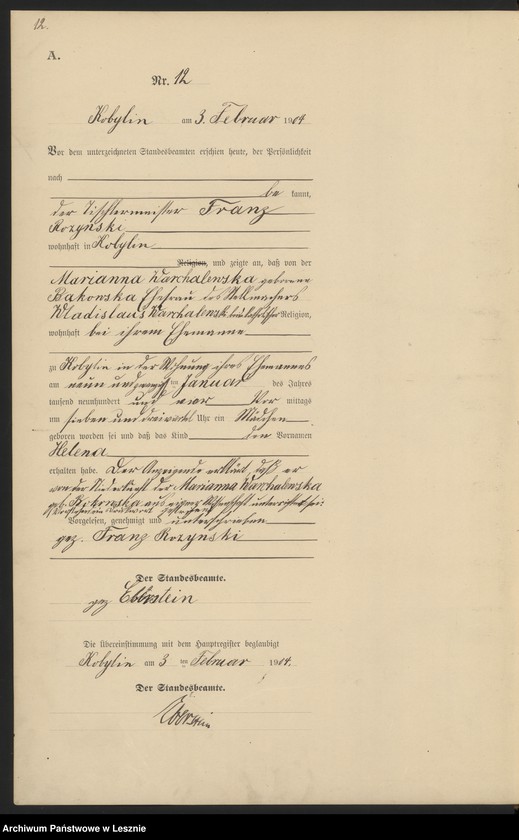 12.
A.
Nr. 12
Kobylin am 3. Februar 1904
Vor dem unterzeichneten Standesbeamten erschien heute, der Persönlichkeit
nach
be kannt,
der Tischlermeister Franz
Rozynski
wohnhaft in Kobylin
Religion, und zeigte an, daß von der
Marianna Warchalewska geborene
Bakowska Ehefrau des Stellmachers
Wladislaus Warchalewski, katholischer Religion,
wohnhaft bei ihrem Ehemanne
zu Kobylin in der Wohnung ihres Ehemannes
am neun und zwanzigsten Januar des Jahres
tausend neunhundert und vier Vor mittags
um sieben und dreiviertel Uhr ein Mädchen
geboren worden sei und daß das Kind den Vornamen
Helena
erhalten habe. Der Anzeigende erklärt, daß er
von der Niederkunft der Marianna Warchalewska
geb. aus eigener Wissenschaft unterrichtet sei.
Vorgelesen, genehmigt und unterschrieben
gez. Franz Rozynski
Der Standesbeamte.
gez Eberstein
Die Übereinstimmung mit dem Hauptregister beglaubigt
Kobylin am 3 ten Februar 1904.
Der Standesbeamte.
Eberstein
Archiwum Państwowe w Lesznie